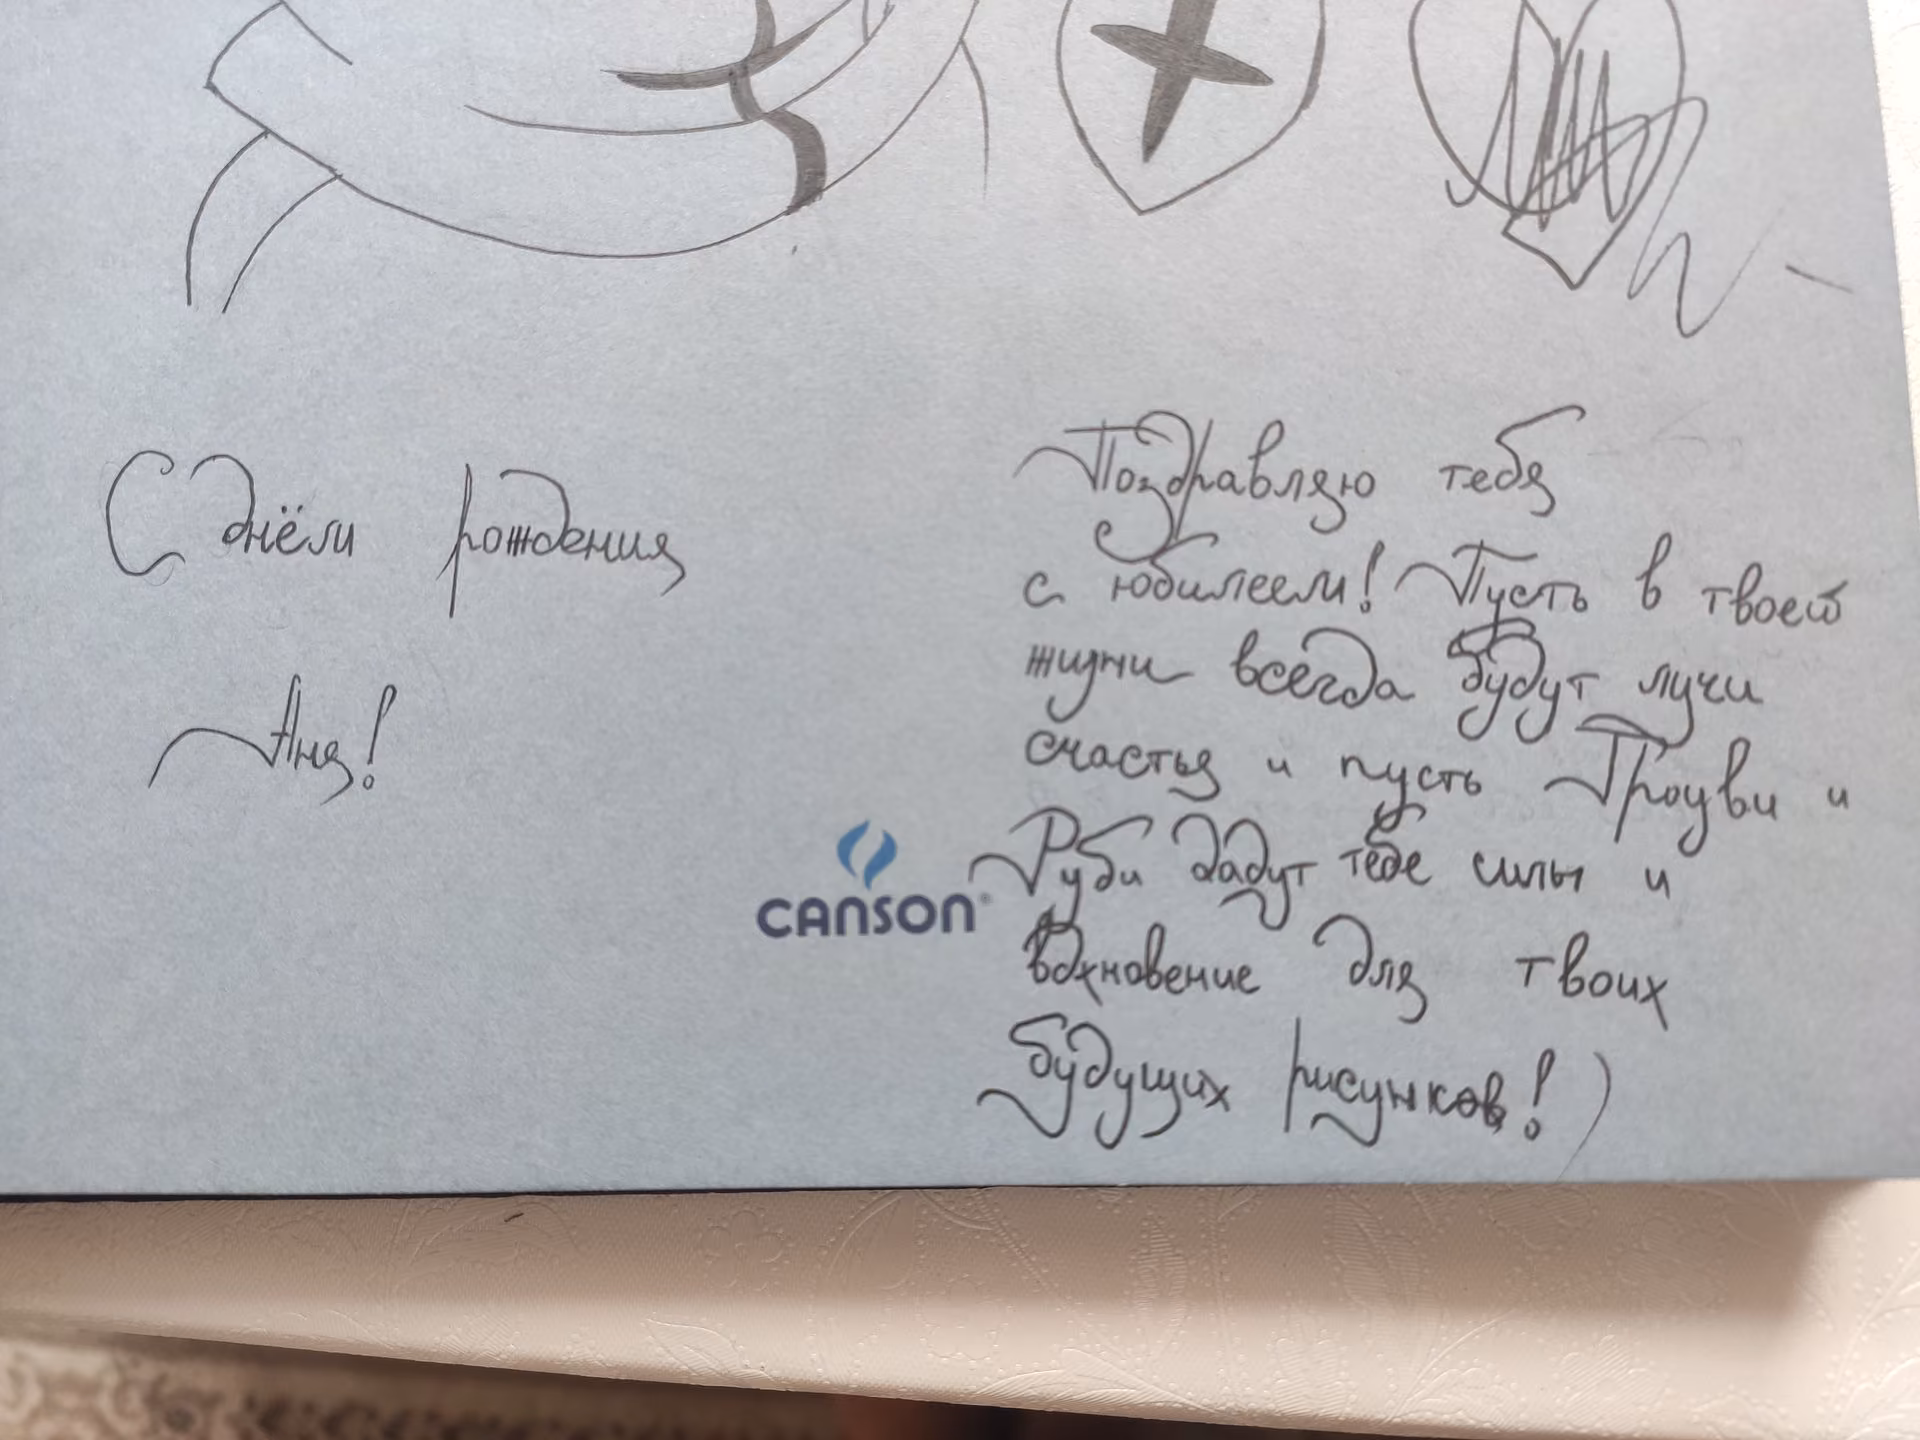 С днём рождения
Аня!
CANSON®
Поздравляю тебя
с юбилеем! Пусть в твоей
жизни всегда будут лучи
счастья и пусть Проуви и
Руби дадут тебе силы и
вдхновение для твоих
будущих рисунков! )